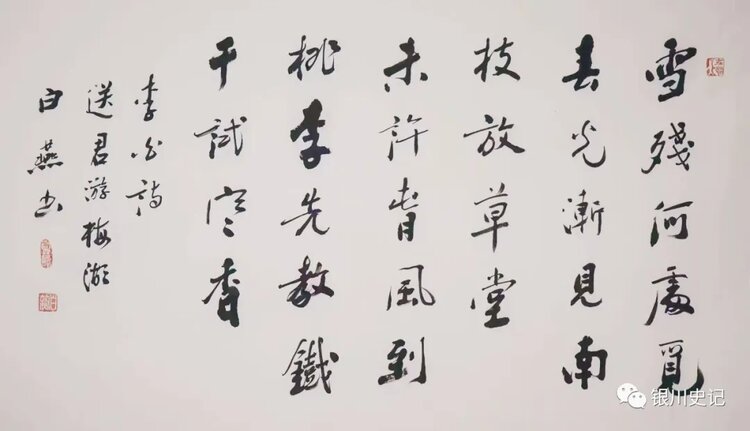 雪殘何處覓
春光漸見南
枝放草堂
未許春風到
桃李先教鐵
干試寒香
李白詩
送君游梅湖
白燕书
银川史记